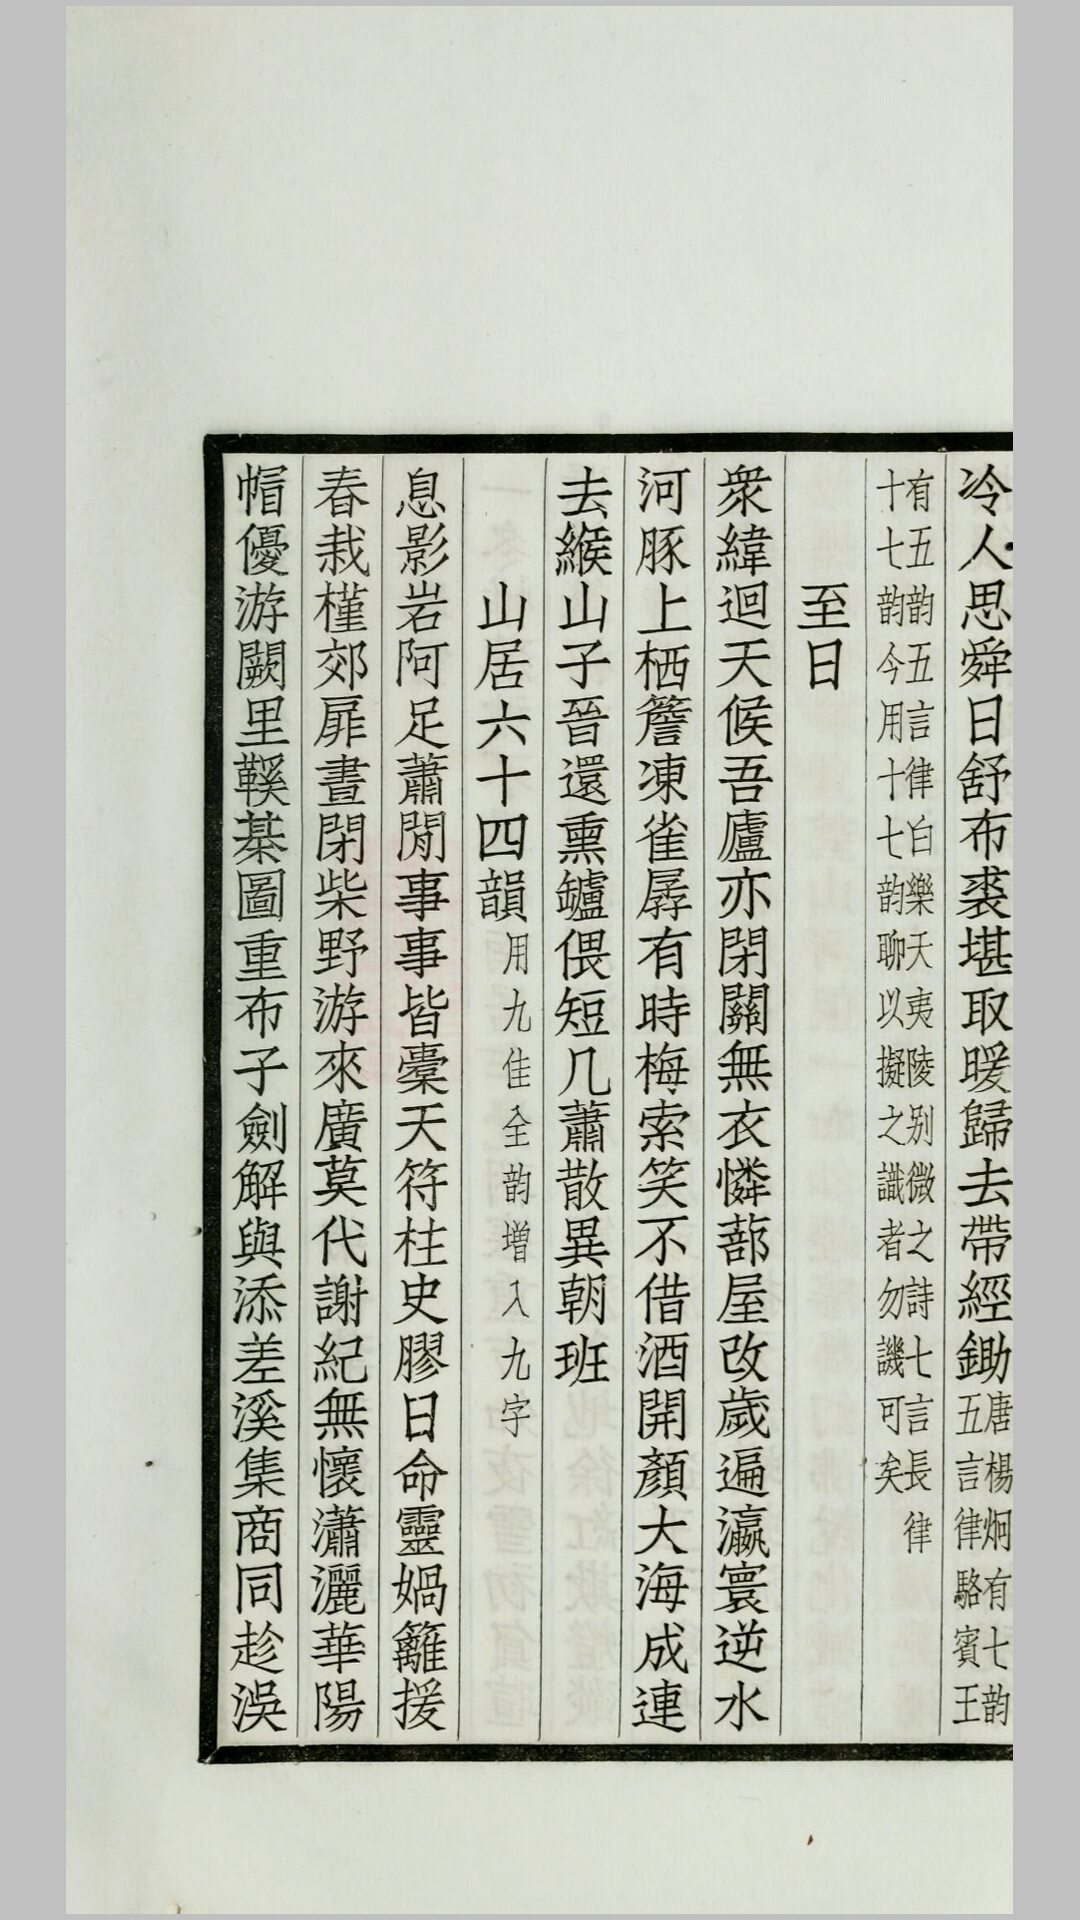 冷人思舜日舒布裘堪取暖歸去帶經鋤唐楊炯有七韵五言律駱賓王
有五韵五言律白樂天夷陵别微之詩七言長律十七韵今用十七韵聊以擬之識者勿譏可矣
至日
衆緯迴天候吾廬亦閉關無衣憐蔀屋改歲遍瀛寰逆水
河豚上栖簷凍雀孱有時梅索笑不借酒開顏大海成連
去緱山子晉還熏鑪偎短几蕭散異朝班
山居六十四韻用九佳全韵增入九字
息影岩阿足蕭閒事事皆橐天符柱史膠日命靈媧籬援
春栽槿郊扉晝閉柴野游來廣莫代謝紀無懷瀟灑華陽
帽優游闕里鞵棊圖重布子劍解與添差溪集商同趁溟